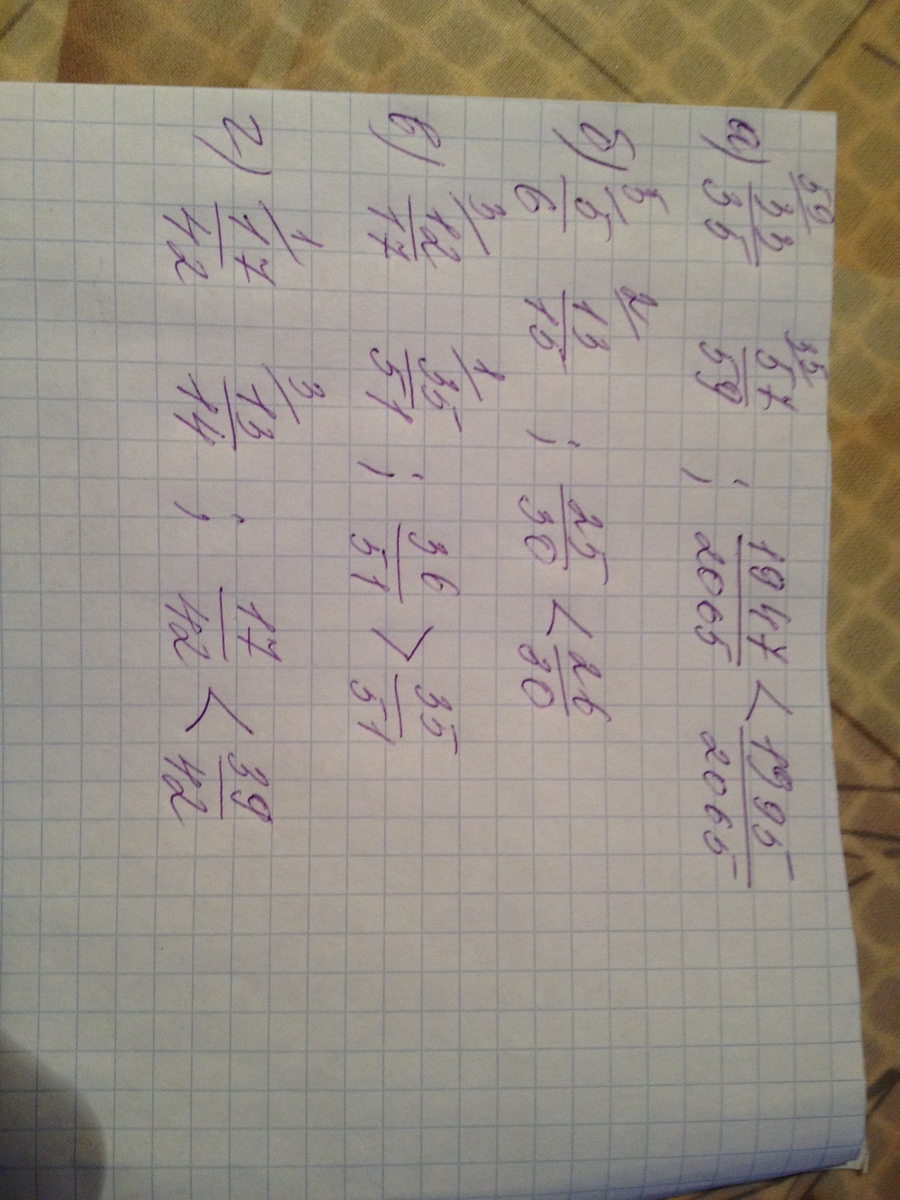 59 35
а) 33/35 57/59 ; 1947/2065 < 1995/2065
5 2
б) 5/6 13/15 ; 25/30 < 26/30
3 1
в) 12/17 35/51 ; 36/51 > 35/51
1 3
г) 17/42 13/14 ; 17/42 < 39/42